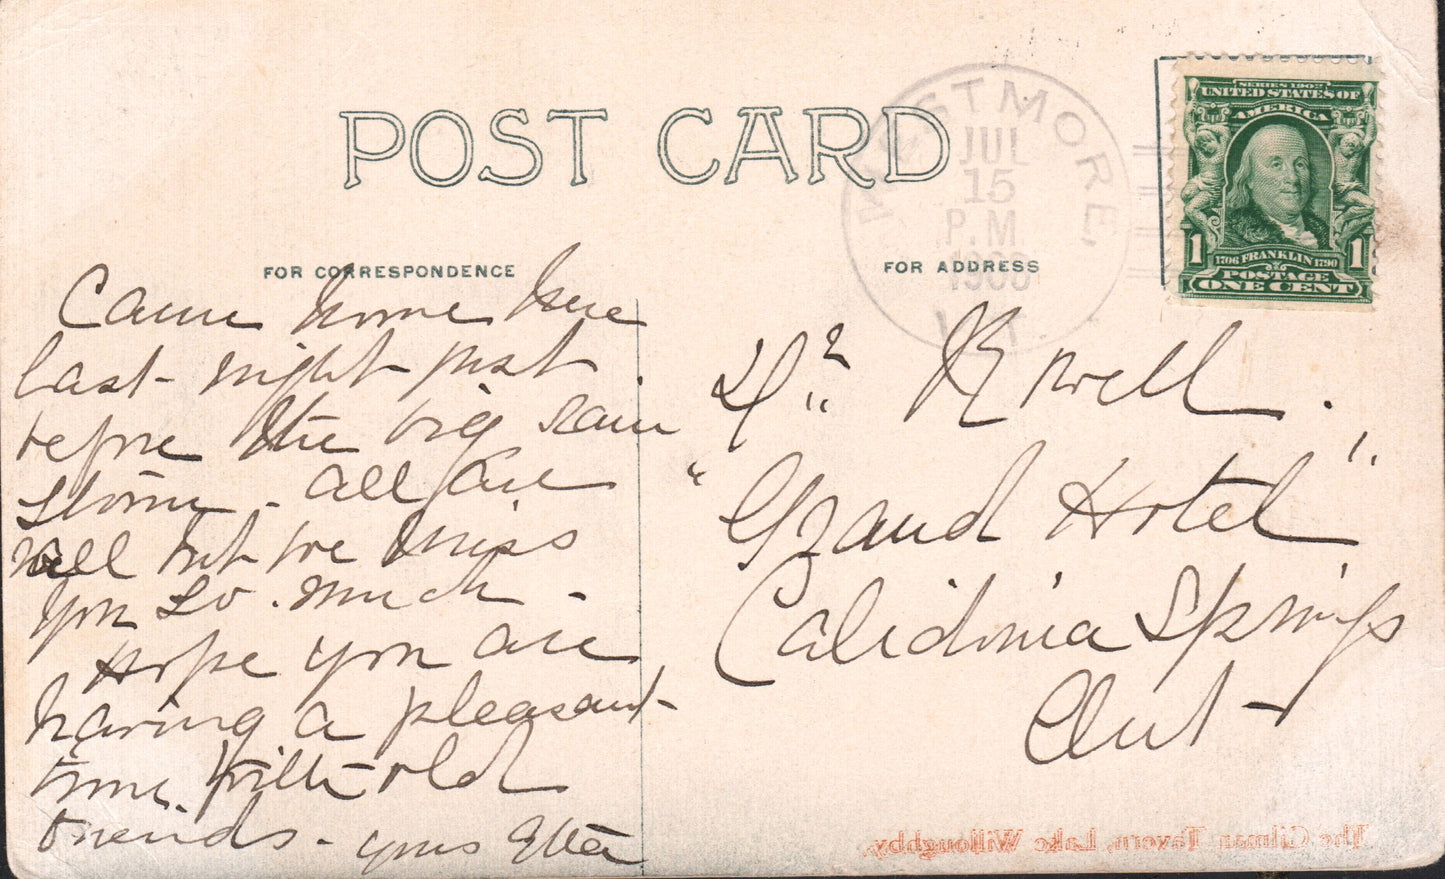 POST CARD
WESTMORE
JUL
15
P.M.
VT.
SERIES 1902
UNITED STATES OF
AMERICA
1 1
1706 FRANKLIN 1790
POSTAGE
ONE CENT
FOR CORRESPONDENCE
FOR ADDRESS
Came home here
last night just
before the big rain
storm - All are
well but we miss
you so much -
Hope you are
having a pleasant
time with old
friends - yours Etta
"Grand Hotel"
Calidonia Springs
Ont -
The Gilman Tavern, Lake Willoughby.